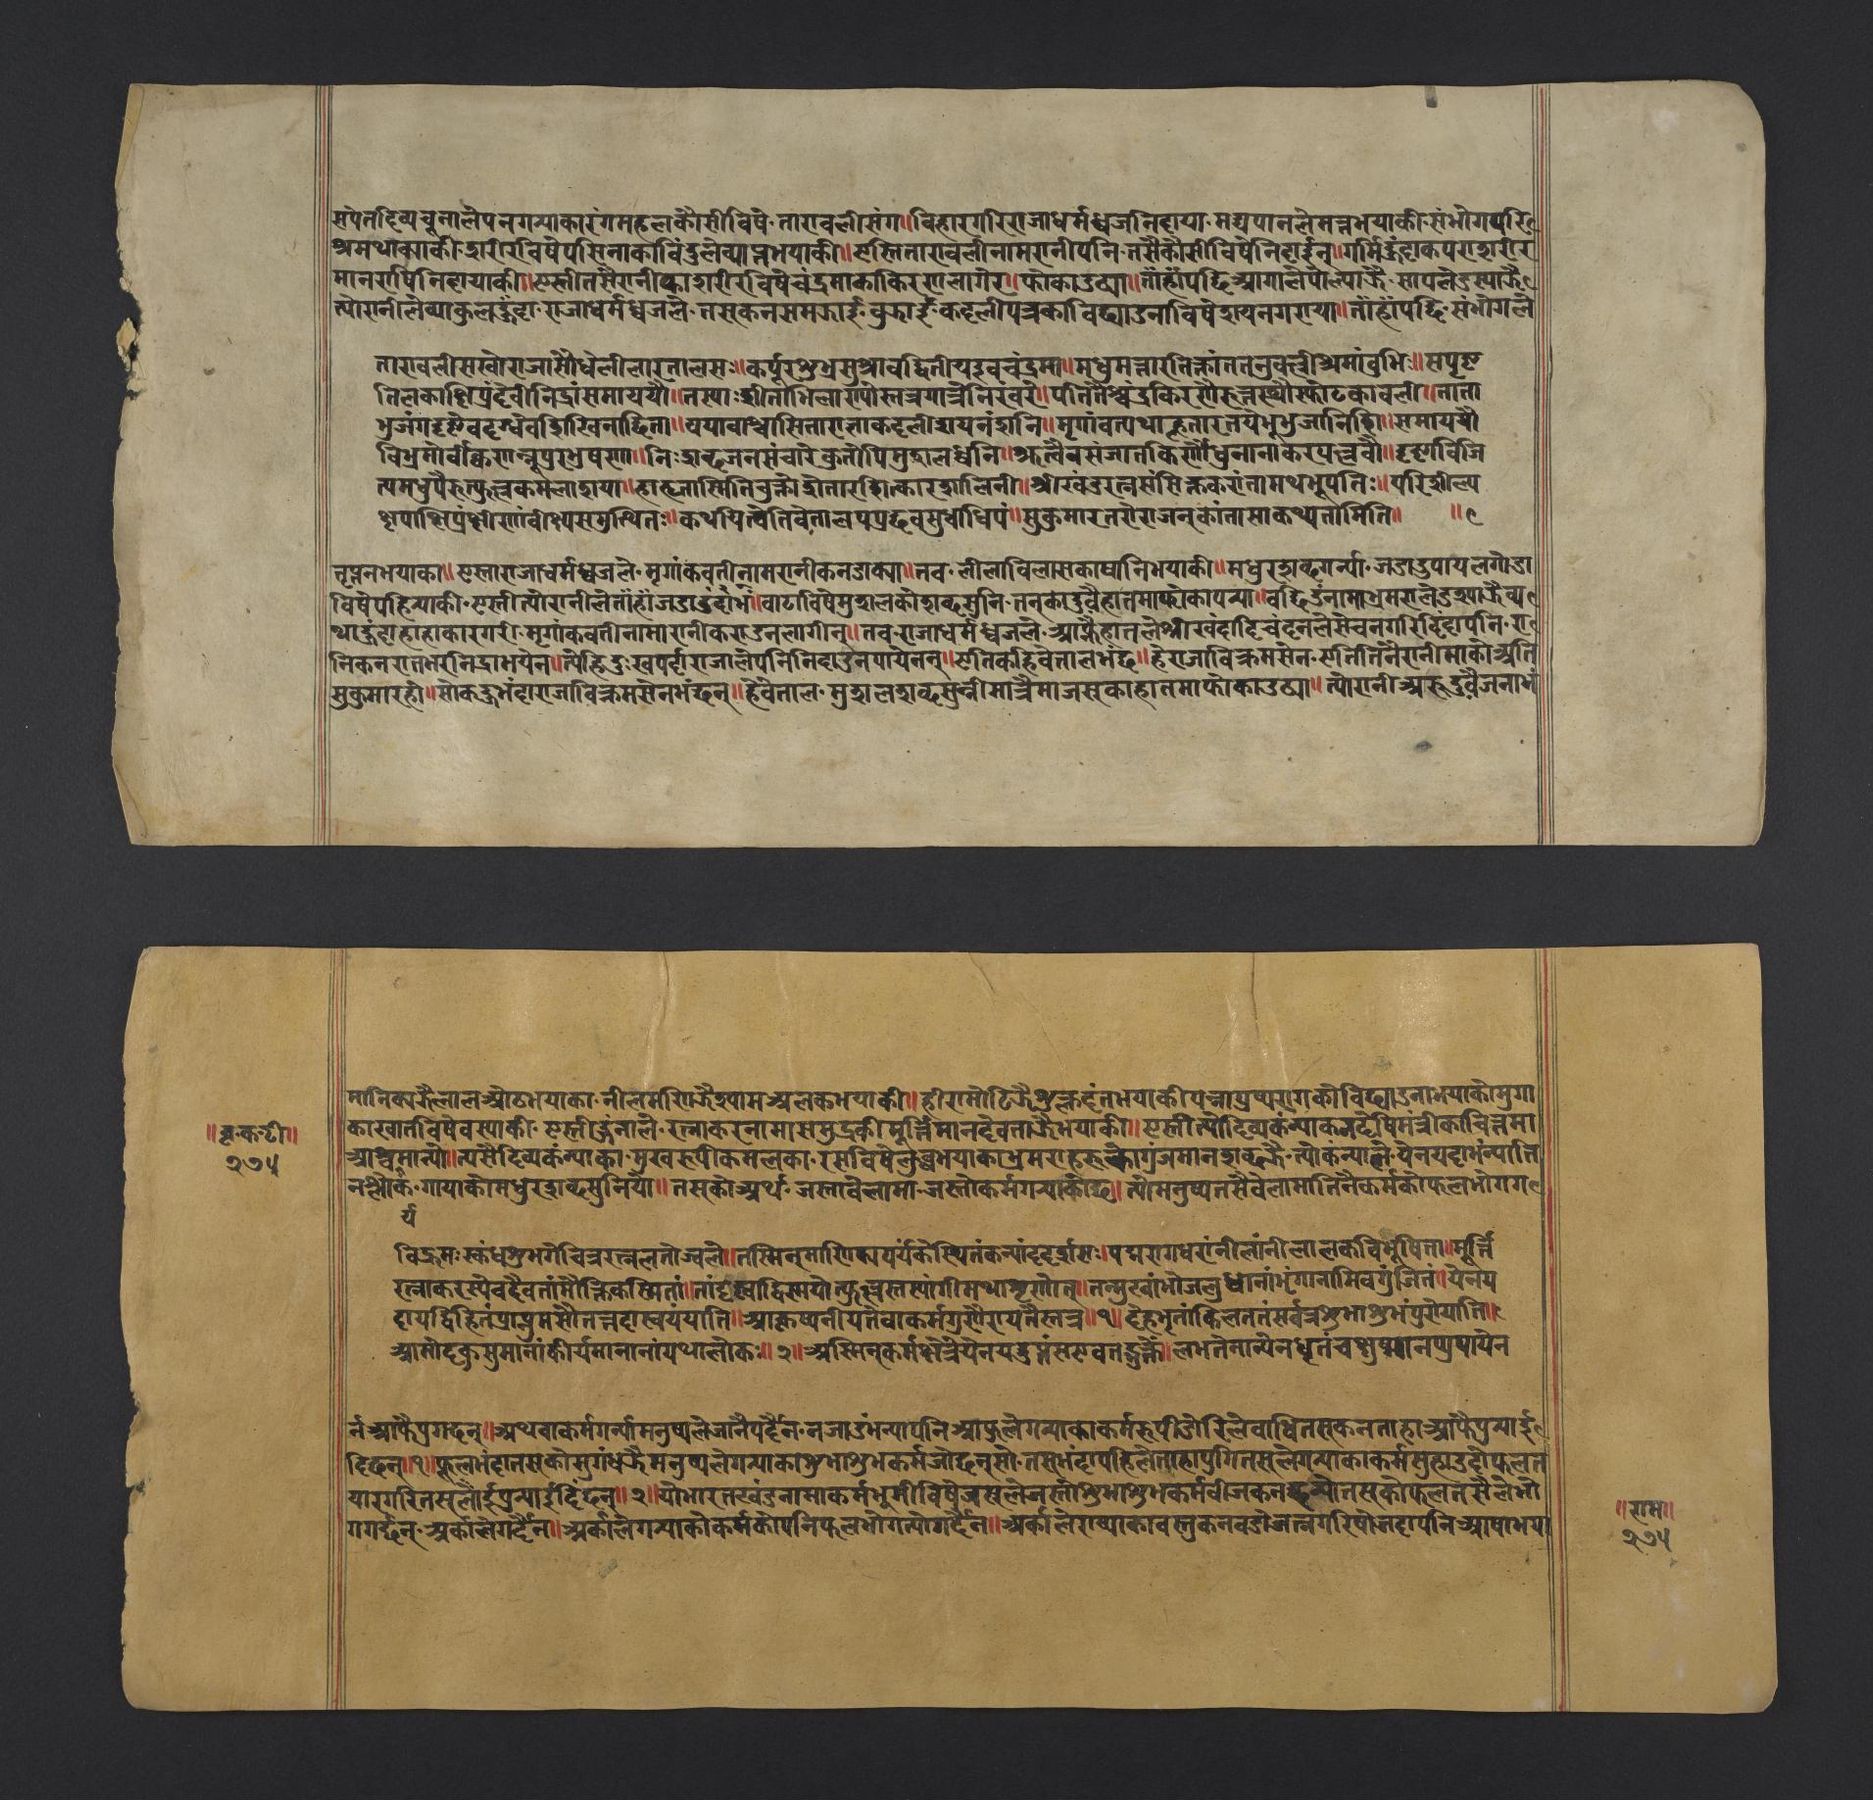 सपेतदिव्यचुनालेपनगर्याकारंगमहलकौसीविषे तारावलीसंग॥विहारगरिराजाधर्मध्वजनिदाया मद्यपानलेमत्तभयाकी संभोगपरि
श्रमथाक्याकी शरीरविषेपसिनाकाविंदुलेव्याप्तभयाकी॥एस्तितारावलीनामरानीपनि तसैकौसीविषेनिदाईन्॥गर्मिहुंदाकपराशरीर
मानराषिनिदायाकी॥एस्तीतसैरानीकाशरीरविषेचंद्रमाकाकिरणलागेर॥फोकाउठ्या॥तांहांपछिआगालेपोल्याझै सापलेडस्याझै
त्योरानीलेव्याकुलहुंदा राजाधर्मध्वजले तसकनसमझाई वुझाई कदलीपत्रकाविछ्याउनाविषेशयनगराया॥तांहांपछि संभोगले
तारावलीसखोराजासौधेलीलारतालसः॥कर्पूरशुभ्रसुश्रावद्वितीयइवचंद्रमा॥मधुमत्तारतिक्लांततनुवल्लीश्रमांवुभिः॥सपुष्प
तिलकाक्षिप्रंदेवीनिद्रांसमाययौ॥तस्याःशीताभिलाषायास्तत्रगात्रेनिरंवरे॥पतितैश्चंद्रकिरणैरुत्तस्थौस्फोटकावली॥साता
भुजंगदष्टेवदग्धेवशिखिनार्दिता॥ययावाश्वासितारात्ताकदलीशयनंशनि॥मृगांवत्यथाहूतारतयेभूभुजानिशि॥समाययौ
विभ्रमोर्वीक्वणन्नूपुरभुषणा॥निःशव्दजनसंचारेकुतोपिमुशलध्वनि॥श्रुत्वैवसंजातकिणौधुनानाकरपल्लवौ॥दृष्ट्वाविजि
त्यमधुपैरुत्फुल्लकमलाशया॥हाहतास्मितिवुक्तोशीतारशित्कारशालिनी॥श्रीखंडरत्नसंसिक्तकरांतामथभूपतिः॥परिशील्य
क्षपाक्षिप्रंक्षीणांवीक्ष्यसमुत्थितः॥कथयित्वेतिवेतालपप्रछवसुधाधिपं॥सुकुमारतरोराजन्कांतासाकथ्यतामिति॥ ॥९
तृप्तनभयाका॥एस्ताराजाधर्मध्वजले मृगांकवतीनामरानीकनडाक्या॥तव लीलाविलासकाषानिभयाकी॥मधुरशव्दगर्न्या जडाउपायलगोडा
विषेपहिर्‍याकी एस्तीत्योरानीलेतांहांजडाउंदामा॥वाटाविषेमुशलकोशव्दसुनि तनकादुवैहातमाफोकापर्‍या॥वद्धिउंनामाभ्रमरालेडस्याझैव्य
थाहुंदाहाहाकारगरी मृगांकवतीनामारानीकराउनलागीन्॥तव राजाधर्मध्वजले आफ्नैहातलेश्रीखंडादिचंदनलेसेचनगरिदिंदापनि रा
निकनरातभरनिद्राभयेन॥त्यहिदुःखपर्दाराजालेपनिनिदाउनपायेनन्॥एतिकहिवेतालभंछ॥हेराजाविक्रमसेन एतितिनैरानीमाकोअति
सुकुमारहो॥सोकहुभंदाराजाविक्रमसेनभंछन्॥हेवेताल मुशलशव्दसुन्नीमात्रैमाजसकाहातमाफोकाउठ्या॥त्योरानीअरुदुवैजनाभं
मानिक्यझैलालओठभयाका नीलमणिझैश्यामअलकभयाकी॥हीरामोतिझैशुक्लदंतभयाकीपन्नापुष्परागकोविछ्याउनाभयाकोमुगा
काखातविषेवस्याकी एस्तीहुंनाले रत्नाकरनामासमुद्रकीमूर्त्तिमानदेवताझैभयाकी॥एस्तीत्योदिव्यकंन्याकनदेषिमंत्रीकाचित्तमा
आश्चर्यमान्यो॥त्यसैदिव्यकंन्याका मुखरूपीकमलका रसविषेलुव्धभयाकाभ्रमराहरुकोगुंजमानशव्दझै त्योकंन्याले येनयदाभंन्यात्ति
नश्लोक गायाकोमधुरशव्दसुनियो॥तसकोअर्थ जस्तावेलामा जस्तोकर्मगर्‍याकोछ त्योमनुष्यतसैवेलामातिनैकर्मकोफलभोगग
र्य
विद्रुमःस्कंधशुभगेचित्ररत्नलतोज्वले॥तस्मिन्माणिक्यपर्यंकेस्थितंकन्यांददर्शसः॥पद्मरागधरांनीलांनीलालकविभूषिता॥मूर्त्ति
रत्नाकरस्येवदेवतांमौक्तिकस्मितां॥तांदृष्ट्वाविस्मयोत्फुल्लस्तस्यांगीमथाशृणोत्॥तन्मुखांभोजलुव्धानांभृंगानामिवगुंजितं॥येनय
दायद्विहितंप्राप्नुमसौतत्तदास्वयंयाति॥आकृष्यनीयतेवाकर्मगुणैरायतैस्तत्र॥१॥देहभृतांकिलततंसर्वत्रशुभाशुभंपुरोयाति॥
आमोदकुसुमानांकीर्यमानानांयथालोकः॥२॥अस्मिन्कर्मक्षेत्रेयेनयदुप्तंसएवतद्भुंक्ते॥लभतेनान्येनधृतंचक्षुष्मानप्युपायेन
र्नआफैपुगछन्॥अथवाकर्मगर्न्यामनुष्यलेजानैपर्दैन नजाउंभंन्यापनिआफुलेगर्‍याकाकर्मरूपीडोरिलेवांधितसकनताहाआफैपुर्‍याई
दिछन्॥१॥फूलभंदातसकोसुगंधझैमनुष्यलेगर्‍याकाशुभाशुभकर्मजोछन्सो तसभंदापहिलेताहापुगितसलेगर्‍याकाकर्मसुहाउदोफलत
यारगरितसलाईपुर्‍याईदिछन्॥२॥योभारतखंडनामाकर्मभुमीविषेजसलेजस्तोशुभाशुभकर्मवीजकनछर्‍योतसकोफलतसैलेभो
गगर्छन् अर्कालेगर्दैन॥अर्कालेगर्‍याकोकर्मकोपनिफलभोगत्योगर्दैन॥अर्कालेराष्याकावस्तुकनवडोजत्नगरिषोजदापनिआषाभया
॥वृ·क·टी॥
२७५
॥राम॥
२७५